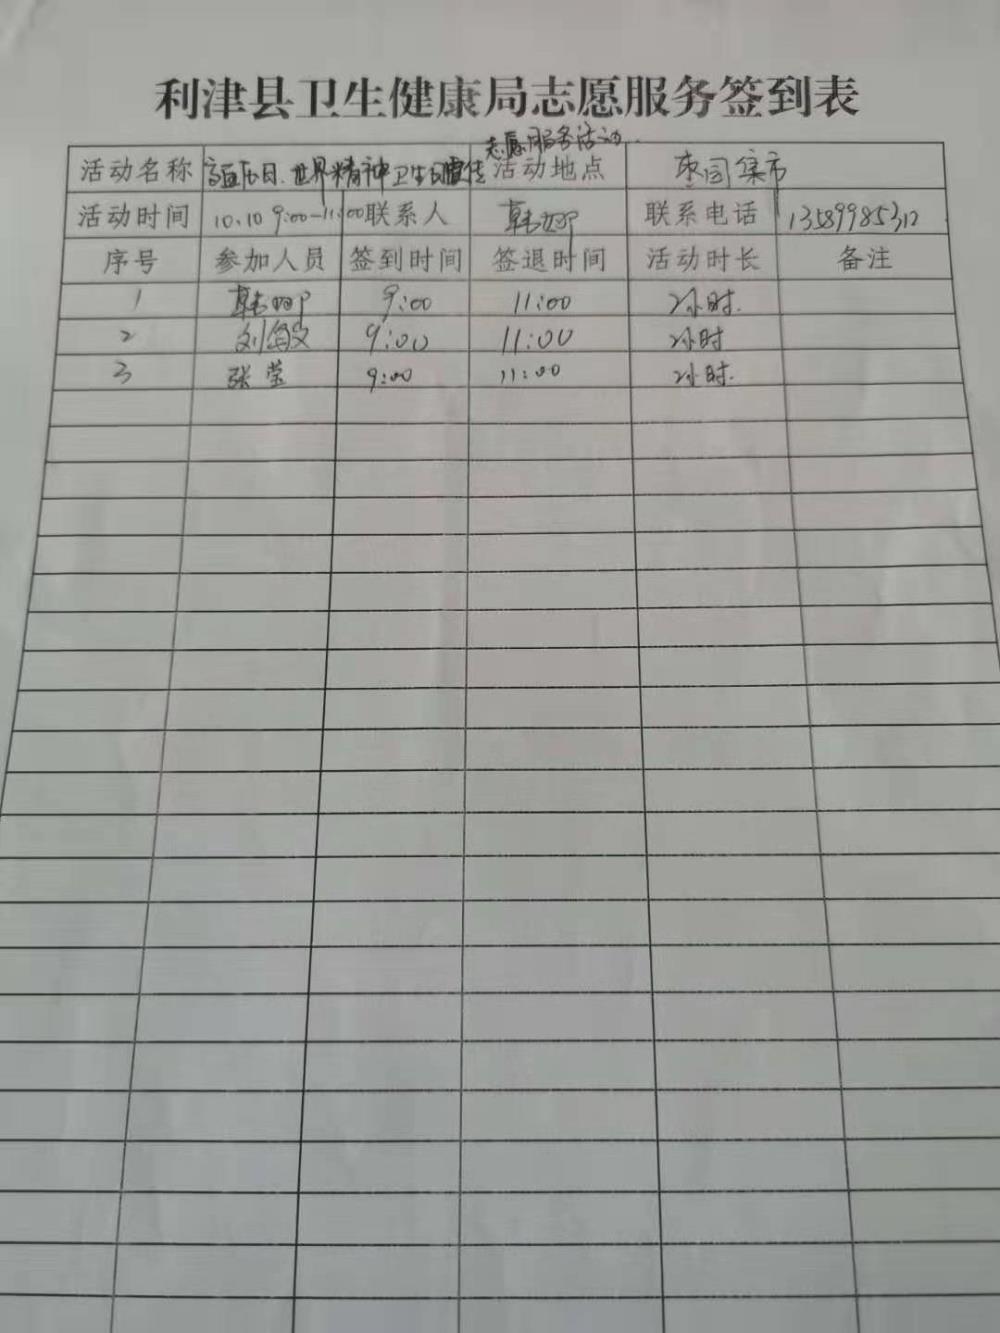 利津县卫生健康局志愿服务签到表
志愿服务活动.
活动名称 高血压日.世界精神卫生日宣传 活动地点 枣园集市
活动时间 10.10 9:00-11:00 联系人 韩 联系电话 13589985312
序号 参加人员 签到时间 签退时间 活动时长 备注
1 韩 9:00 11:00 2小时.
2 刘 9:00 11:00 2小时
3 张莹 9:00 11:00 2小时.